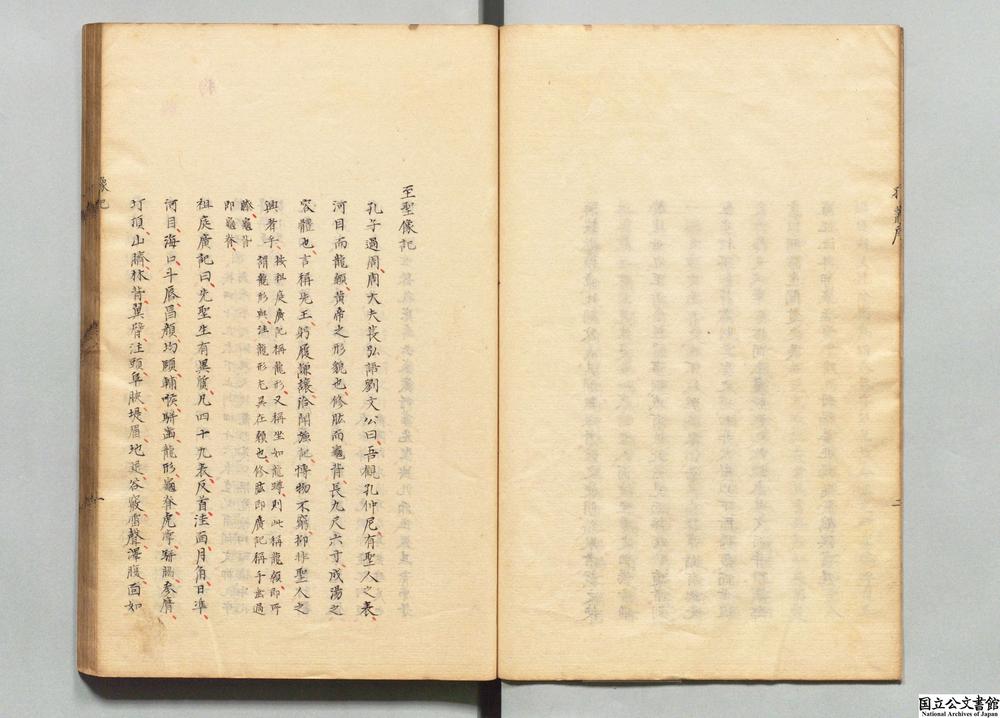 至聖像記
孔子適周周大夫萇弘語劉文公曰吾觀孔仲尼有聖人之表
河目而龍顙黃帝之形貌也修肱而龜背長九尺六寸成湯之
容體也言稱先王躬履謙讓洽聞強記博物不窮抑非聖人之
興者乎
按祖庭廣記稱龍形又稱坐如龍蹲則此稱龍顙即所
謂龍形與注龍形尤異在顙也修肱即廣記稱手垂過
膝龜背
即龜脊
祖庭廣記曰先聖生有異質凡四十九表反首洼面月角日準
河目海口斗唇昌顏均頤輔喉駢齒龍形龜脊虎掌駢脇參膺
圩頂山臍林背翼臂注頭阜陜堤眉地足谷竅雷聲澤腹面如
像記
一
二
国立公文書館
National Archives of Japan